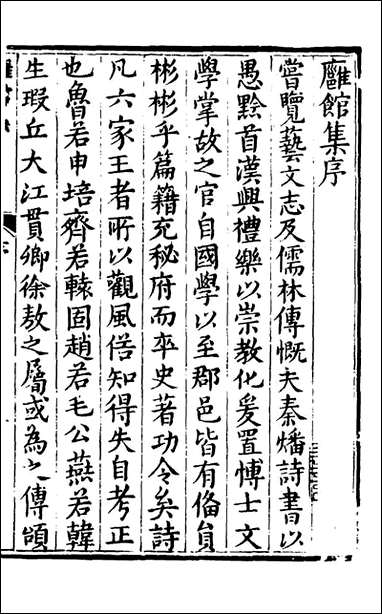 廱館集序
嘗覽藝文志及儒林傳慨夫秦燔詩書以
愚黔首漢興禮樂以崇教化爰置博士文
學掌故之官自國學以至郡邑皆有俻員
彬彬乎篇籍充秘府而卒史著功令矣詩
凡六家王者所以觀風俗知得失自考正
也魯若申培齊若轅固趙若毛公燕若韓
生瑕丘大江貫卿徐敖之屬或為之傳頌